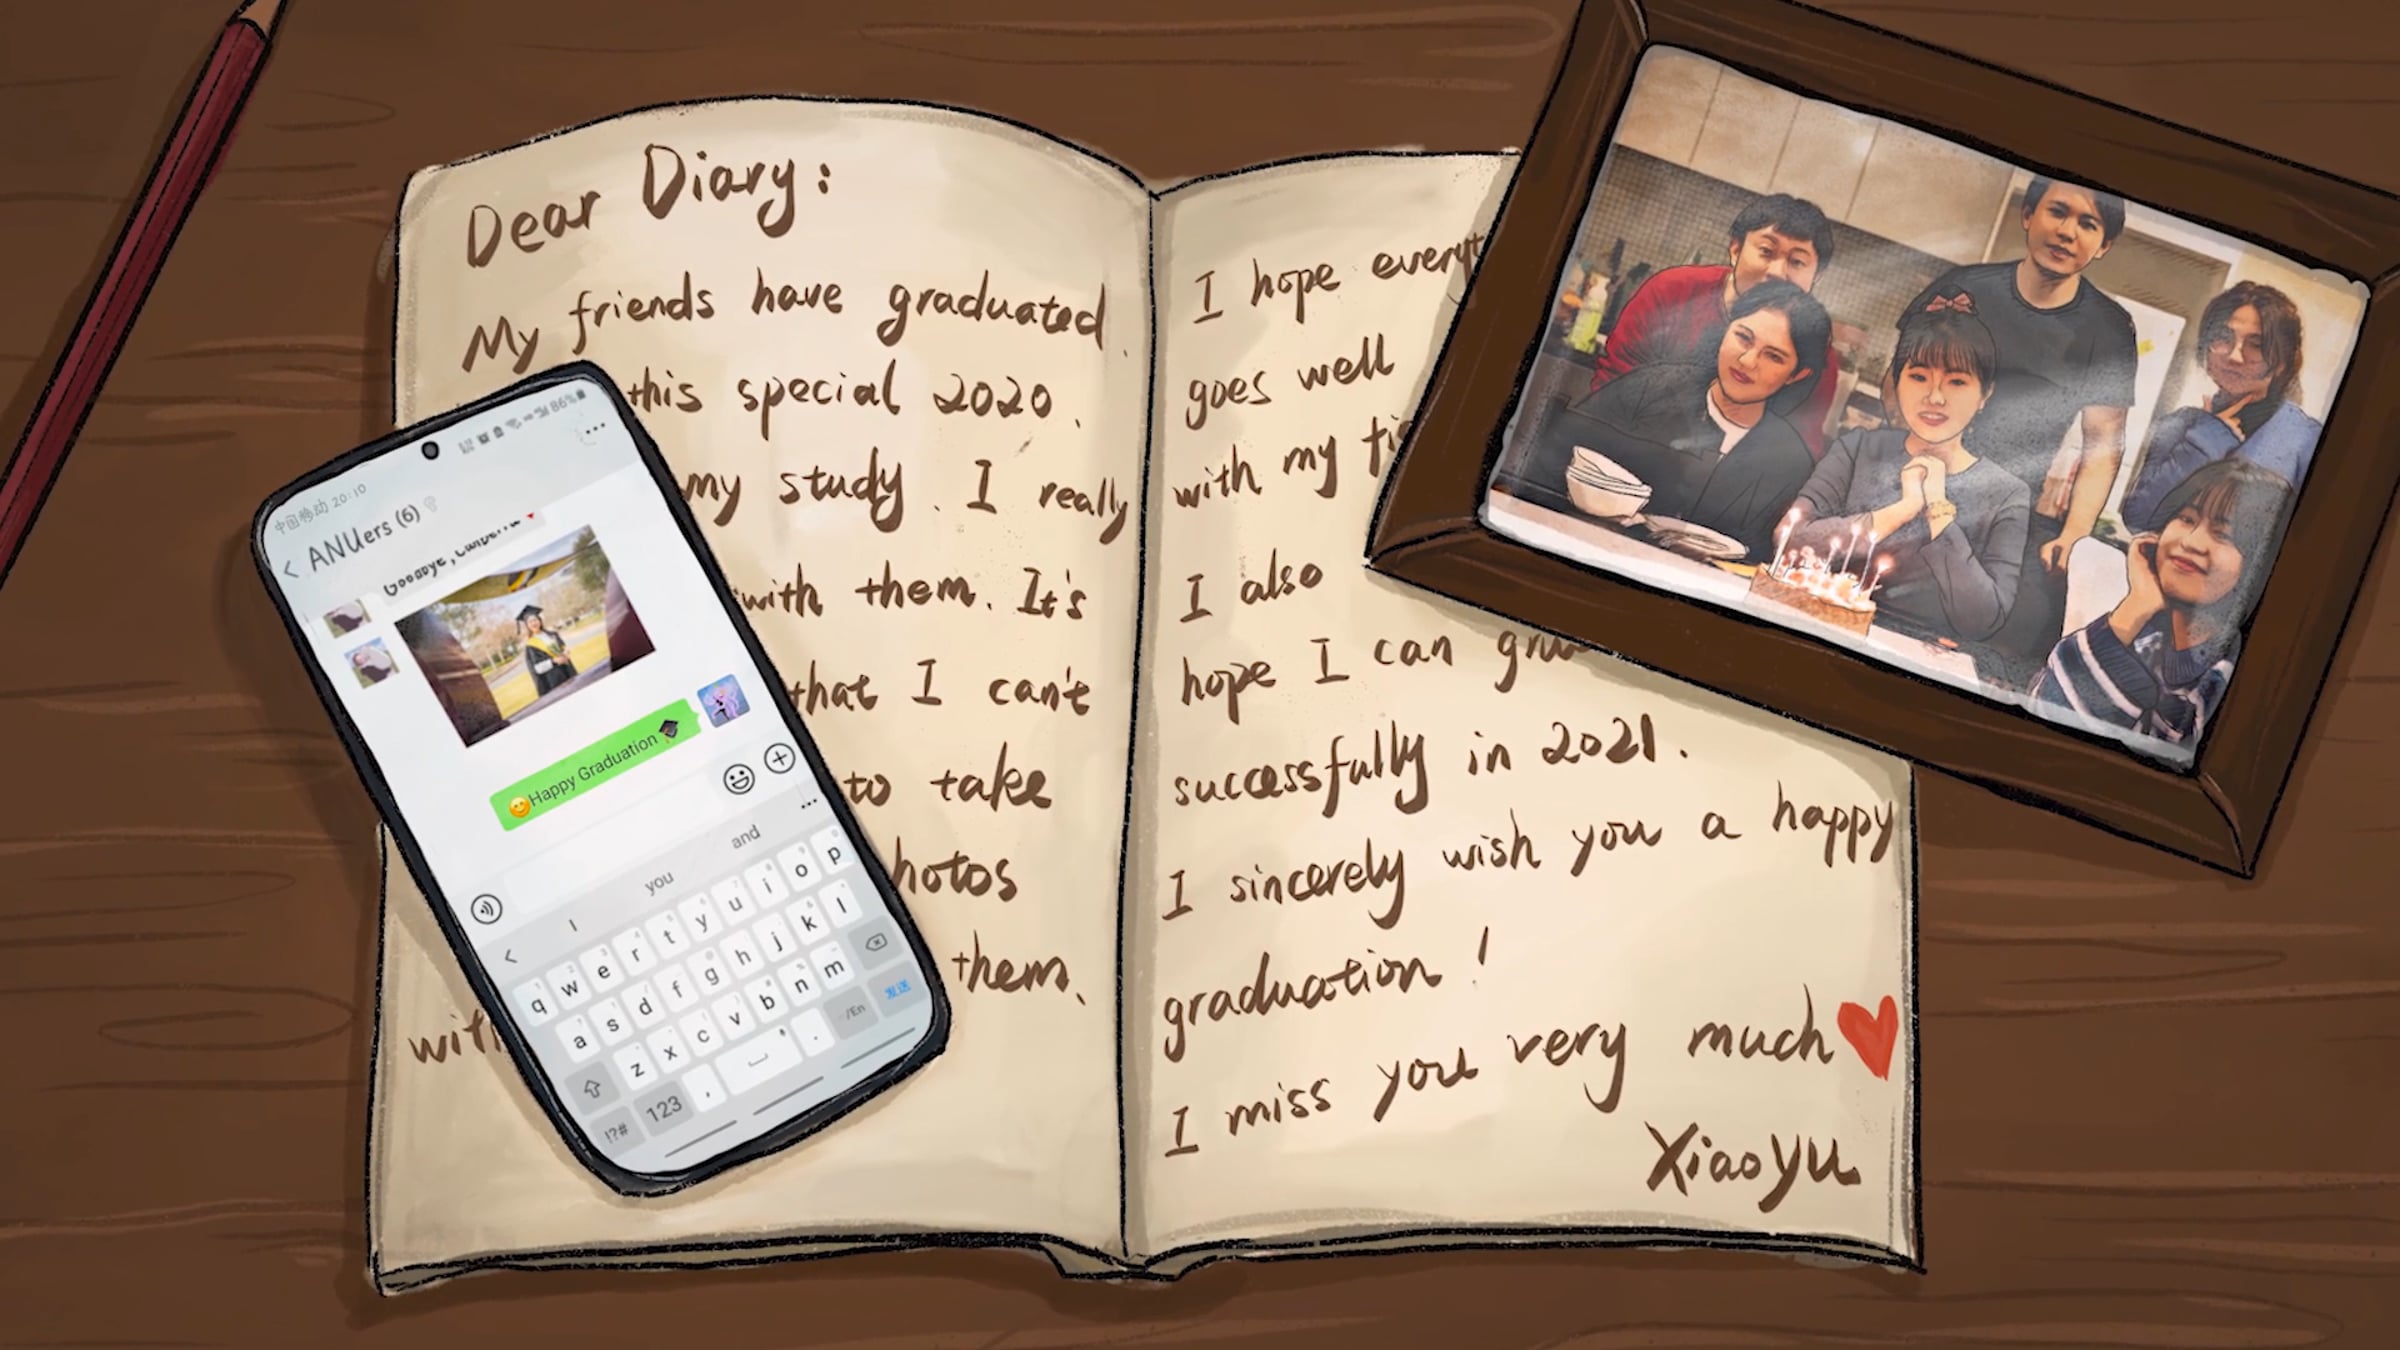 Dear Diary:
My friends have graduated
this special 2020.
my study. I really
with them. It's
that I can't
to take
hotos
them.
I hope
goes well
with my
I also
hope I can
successfully in 2021.
I sincerely wish you a happy
graduation!
I miss you very much
XiaoYu
中国移动 20:10
86%
ANUers (6)
Goodbye, Canberra
😊Happy Graduation🎓
I you and
q w e r t y u i o p
a s d f g h j k l
z x c v b n m
!?# 123 , . /En 发送